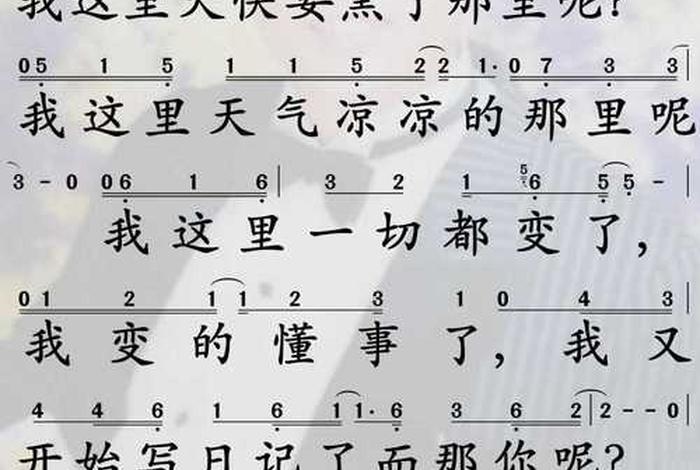 我这里天快要黑了那里呢?
05 1 5 1 1 5 2 2 1· 0 7 3 3
我这里天气凉凉的那里呢
3 - 0 06 1 6 3 2 1 5 6 5 5 -
我这里一切都变了,
01 2 1 1 2 3 1 0 4 3
我变的懂事了,我又
4 4 6 1 6 1 1· 6 3 6 2 2 - - 0
开始写日记了而那你呢?